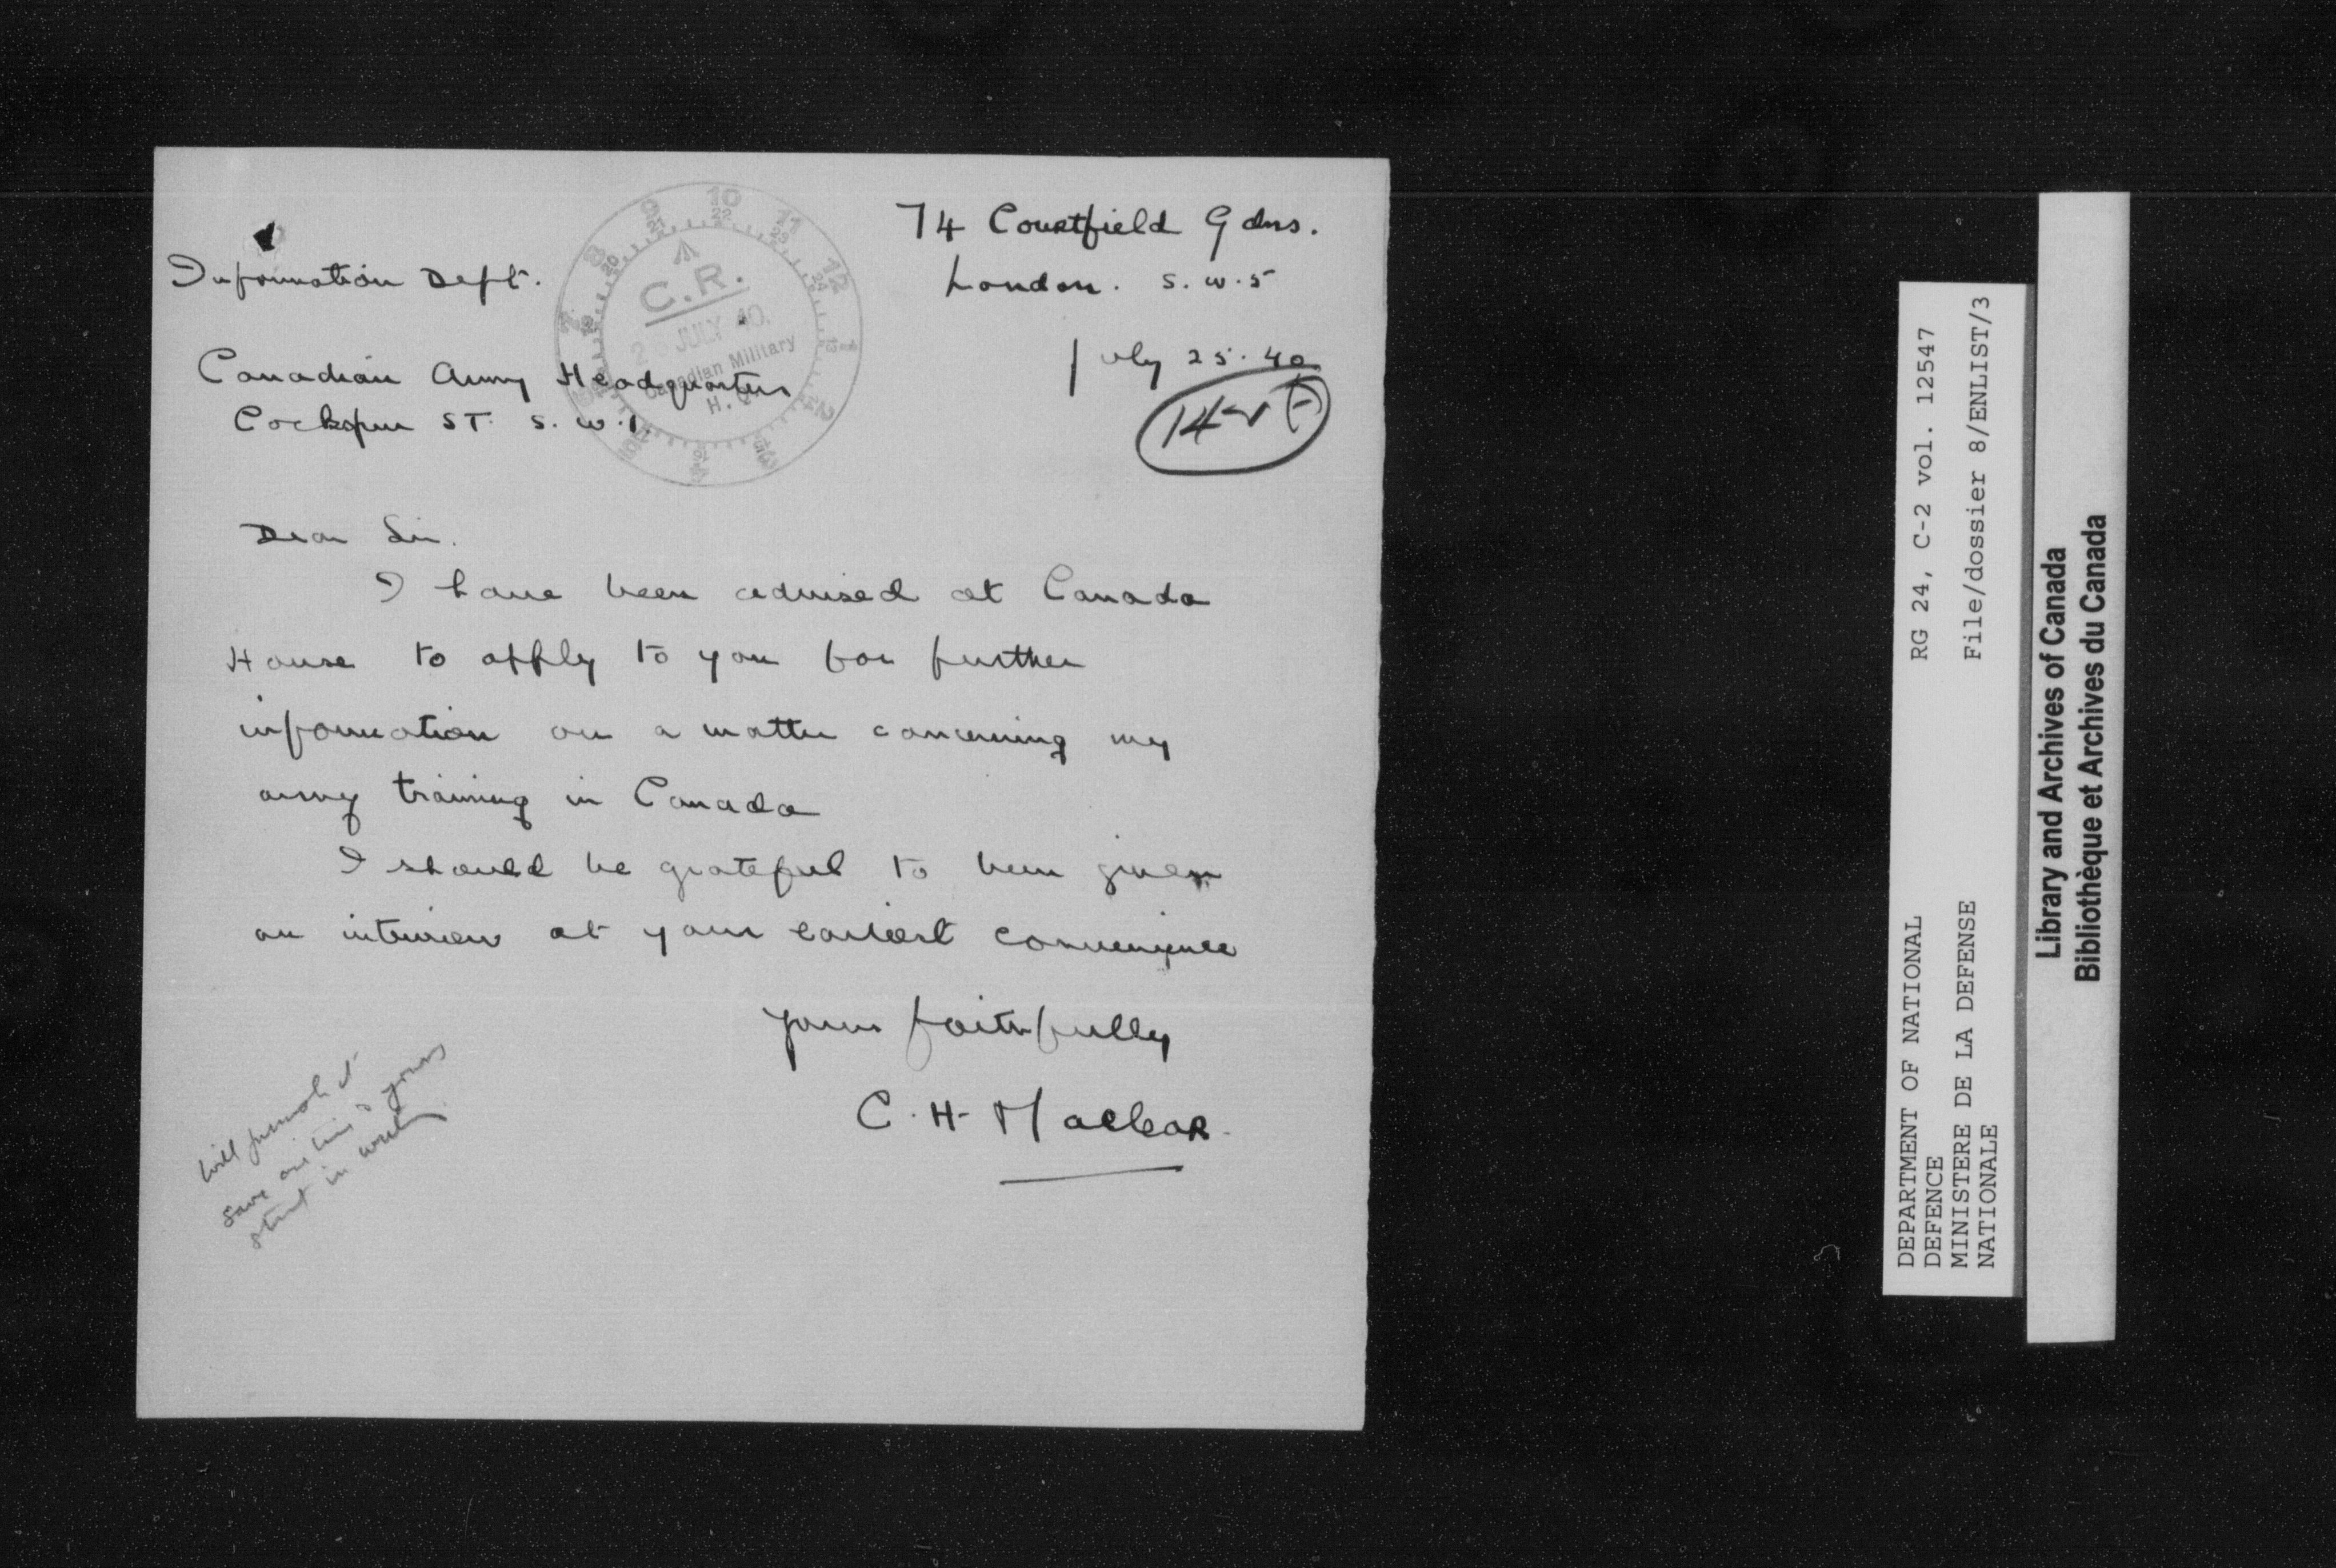 74 Courtfield Gdns.
London. S.W.5
July 25. 40
Information Dept.
Canadian Army Headquarters
Cockspur ST. S.W.1.
C.R.
JULY 40
Canadian Military
H.Q.
Dear Sir.
I have been advised at Canada
House to apply to you for further
information on a matter concerning my
army training in Canada
I should be grateful to been given
an interview at your earliest convenience
Yours faithfully
C.H. Maclear.
will
save
start in
RG 24, C-2 vol. 12547
File/dossier 8/ENLIST/3
DEPARTMENT OF NATIONAL
DEFENCE
MINISTERE DE LA DEFENSE
NATIONALE
Library and Archives of Canada
Bibliothèque et Archives du Canada